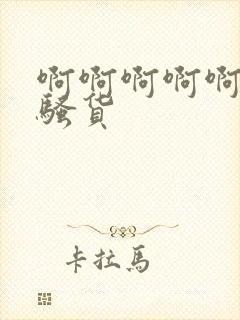 啊啊啊啊啊
骚货
卡拉馬